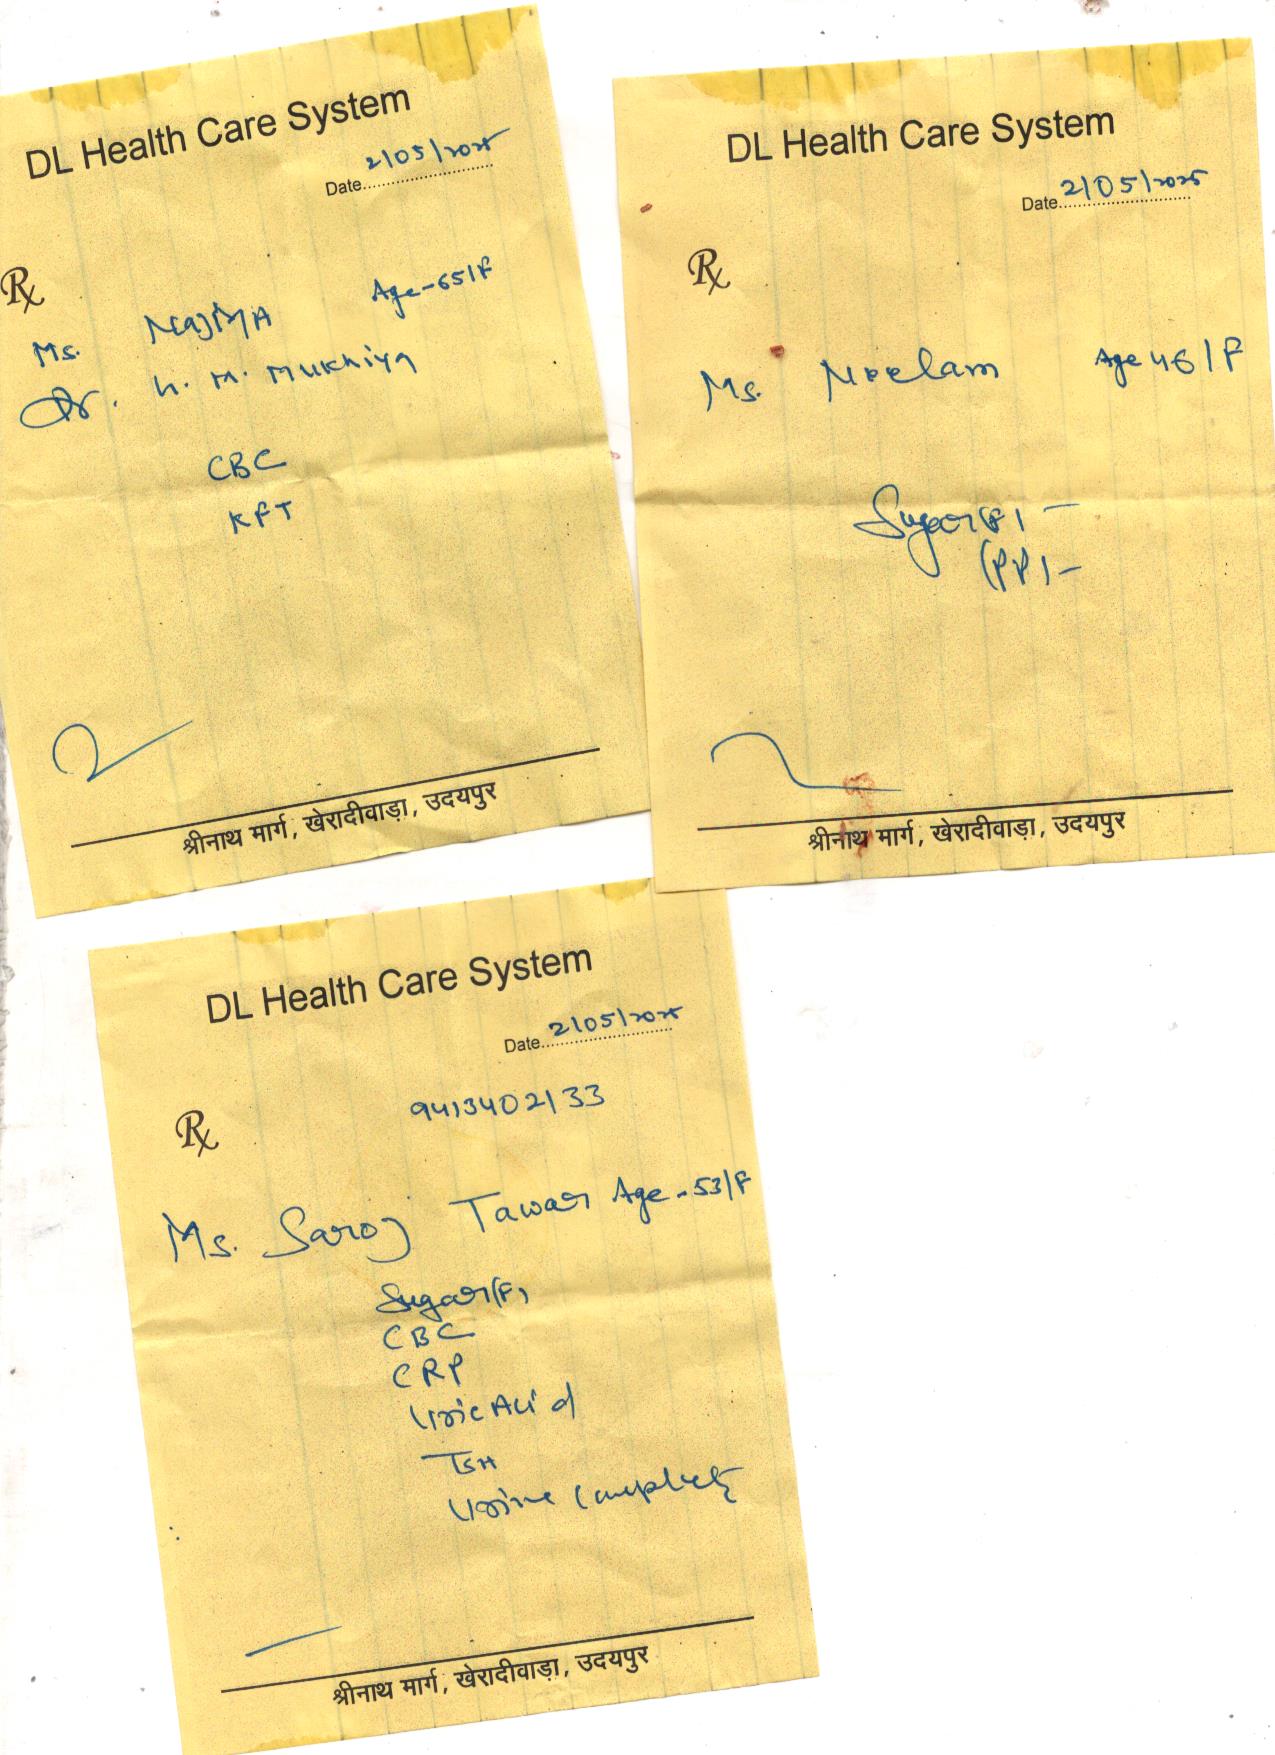 DL Health Care System
Date 2/05/2025
Rx
Age-65/F
Ms. NajMA
Dr. h. M. Mukhiya
CBC
KFT
श्रीनाथ मार्ग, खेरादीवाड़ा, उदयपुर
DL Health Care System
Date 2/05/2025
Rx
Ms. Neelam Age 46/F
Sugar(F) -
(PP) -
श्रीनाथ मार्ग, खेरादीवाड़ा, उदयपुर
DL Health Care System
Date 2/05/2025
9413402133
Rx
Ms. Saroj Tawar Age-53/F
Sugar(F)
CBC
CRP
Uric Acid
TSH
Urine Complete
श्रीनाथ मार्ग, खेरादीवाड़ा, उदयपुर